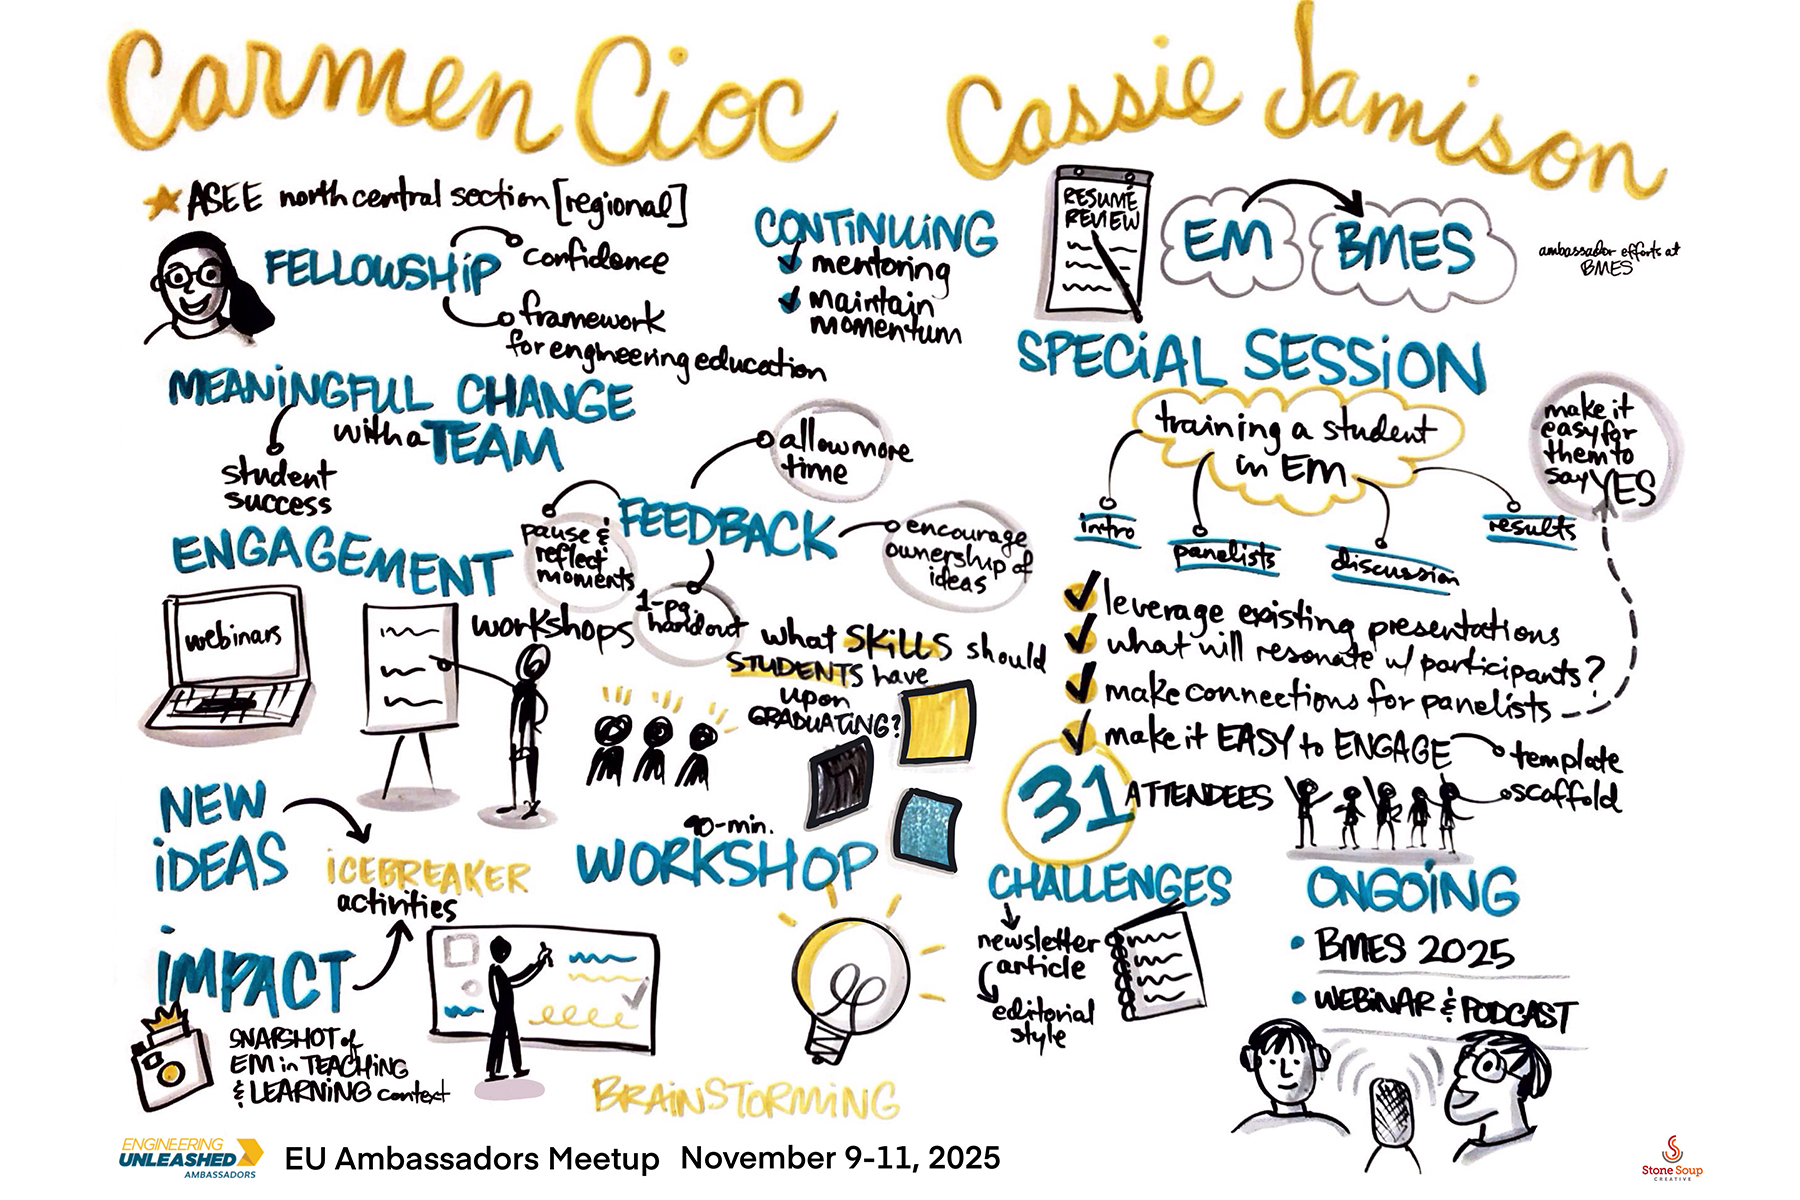 Carmen Cioc
ASEE north central section [regional]
FELLOWSHIP
confidence
framework
for engineering education
CONTINUING
mentoring
maintain
momentum
MEANINGFUL CHANGE
with a TEAM
student
success
FEEDBACK
allow more
time
pause &
reflect
moments
1-pg.
handout
encourage
ownership of
ideas
ENGAGEMENT
webinars
workshops
what SKILLS should
STUDENTS have
upon
GRADUATING?
NEW
IDEAS
ICEBREAKER
activities
IMPACT
SNAPSHOT of
EM in TEACHING
& LEARNING context
90-min.
WORKSHOP
BRAINSTORMING
Cassie Jamison
RESUMÉ
REVIEW
EM
BMES
ambassador efforts at
BMES
SPECIAL SESSION
training a student
in EM
intro
panelists
discussion
results
make it
easy for
them to
say YES
leverage existing presentations
what will resonate w/ participants?
make connections for panelists
make it EASY to ENGAGE
template
scaffold
31 ATTENDEES
CHALLENGES
newsletter
article
editorial
style
ONGOING
• BMES 2025
• WEBINAR & PODCAST
ENGINEERING
UNLEASHED
AMBASSADORS
EU Ambassadors Meetup November 9-11, 2025
Stone Soup
CREATIVE